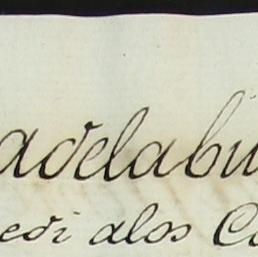 adelabu
edi alos Ca